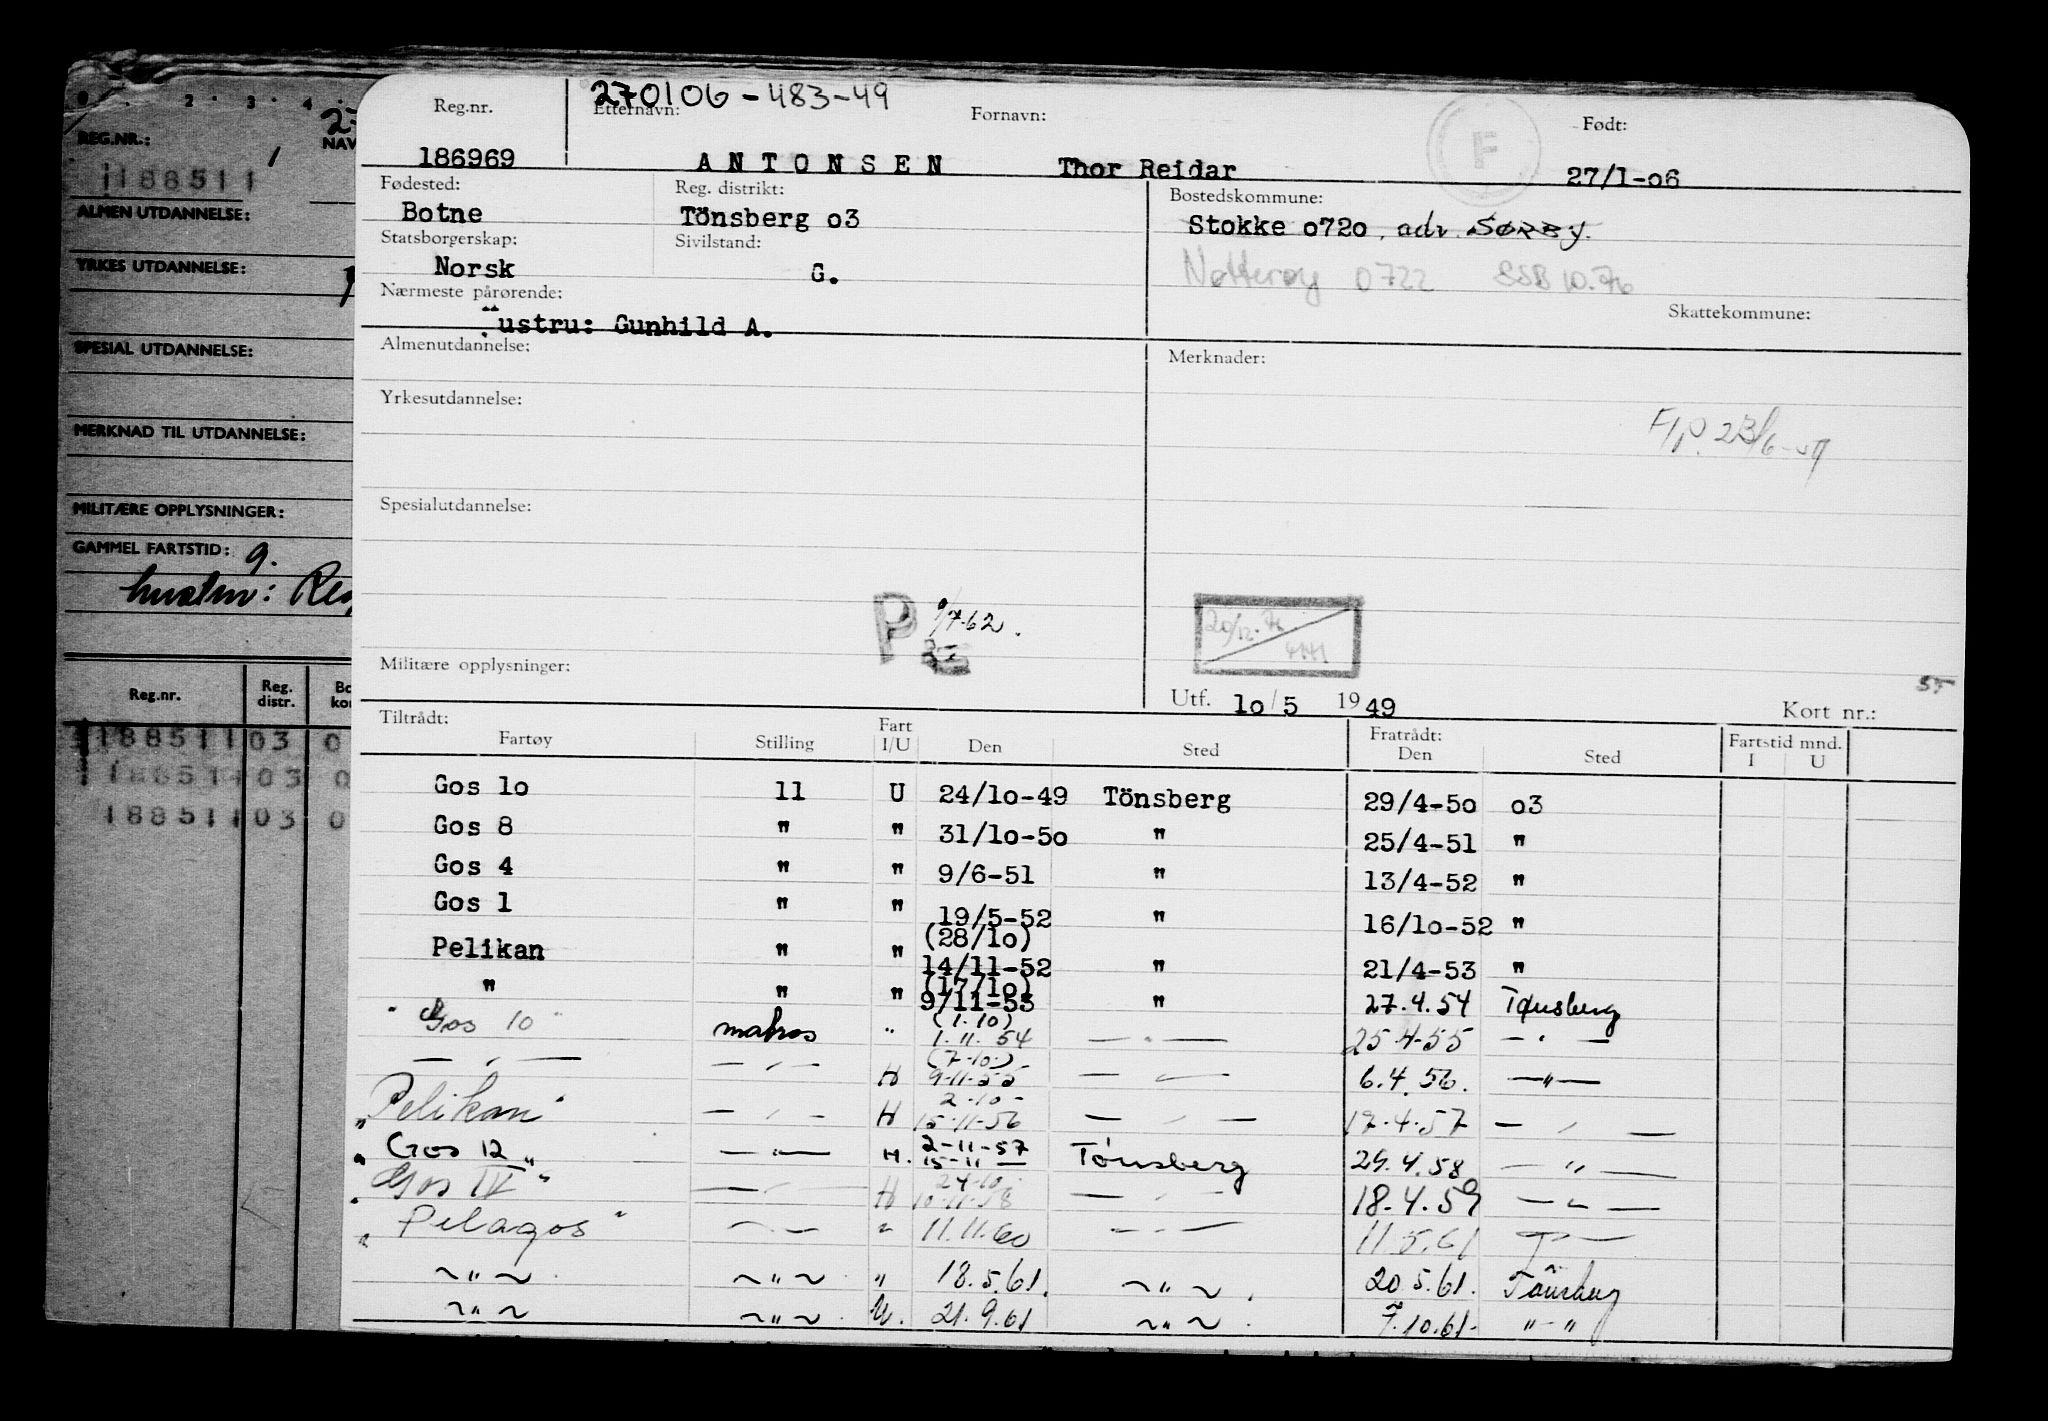 REG.NR.:
188511
NAV
ALMEN UTDANNELSE:
YRKES UTDANNELSE:
SPESIAL UTDANNELSE:
MERKNAD TIL UTDANNELSE:
MILITÆRE OPPLYSNINGER:
GAMMEL FARTSTID: g.
Reg.nr. Reg. distr. Bo kor
188511 03 0
188511 03 0
188511 03 0
270106-483-49
Reg.nr. Etternavn: Fornavn: Født:
F
186969 ANTONSEN Thor Reidar 27/1-o6
Fødested: Reg. distrikt: Bostedskommune:
Botne Tönsberg o3 Stokke o72o, adr. SØRBY.
Statsborgerskap: Sivilstand:
Norsk G. Nøtterøy 0722 SSB 10.76
Nærmeste pårørende: Skattekommune:
ustru: Gunhild A.
Almenutdannelse: Merknader:
Yrkesutdannelse:
Spesialutdannelse:
P 7-62.
20/12-76
Militære opplysninger:
Utf. lo/5 1949 Kort nr.:
Tiltrådt: Fratrådt: Fartstid mnd.
Fartøy Stilling Fart I/U Den Sted Den Sted I U
Gos lo 11 U 24/lo-49 Tönsberg 29/4-5o o3
Gos 8 " " 31/lo-5o " 25/4-51 "
Gos 4 " " 9/6-51 " 13/4-52 "
Gos 1 " " 19/5-52 " 16/lo-52 "
(28/lo)
Pelikan " " 14/11-52 " 21/4-53 "
(17/lo)
" " " 9/11-53 " 27.4.54 Tønsberg
(1.10)
"Gos 10" matros " 1.11.54 — " — 25.4.55 — " —
(7.10.)
— " — — " — H 9-11-55 — " — 6.4.56. — " —
2-10-
"Pelikan" — " — H 15-11-56 — " — 17.4.57 — " —
2-11-57
"Gos 12" — " — H. 15-11 — Tønsberg 24.4.58 — " —
24-10
"Gos IV" — " — H 10-11-58 — " — 18.4.59 — " —
"Pelagos" — " — " 11.11.60 — " — 11.5.61 — " —
~ " ~ ~ " ~ " 18.5.61. ~ " ~. 20.5.61. Tönsberg
~ " ~ ~ " ~. U. 21.9.61 ~ " ~. 7.10.61- " - "